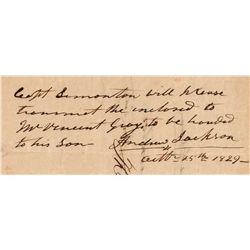 Capt Simonton will please
transmit the enclosed to
Mr Vincent Gray, to be handed
to his Son Andrew Jackson
Octbr 15th 1829—